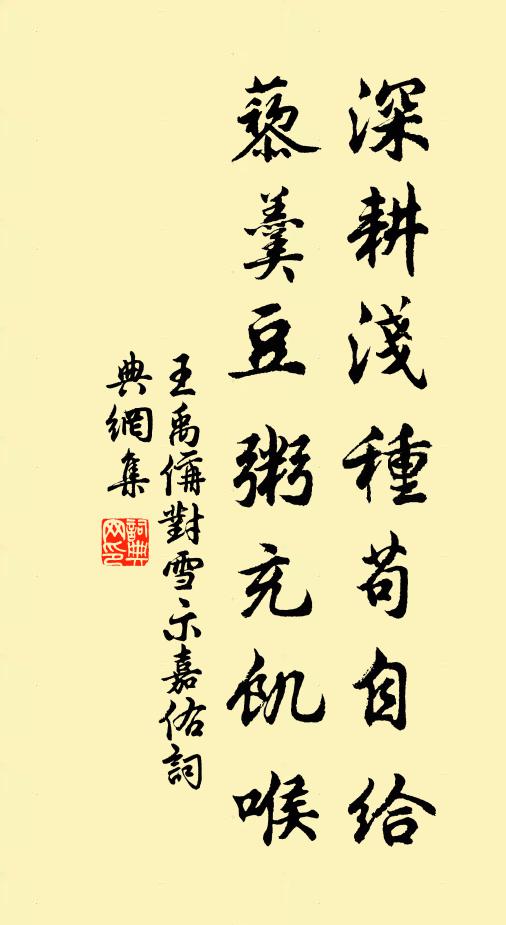 深耕淺種苟自給
藜羹豆粥充飢喉
王禹偁對雪示嘉佑詞
典網集
詞典
网印